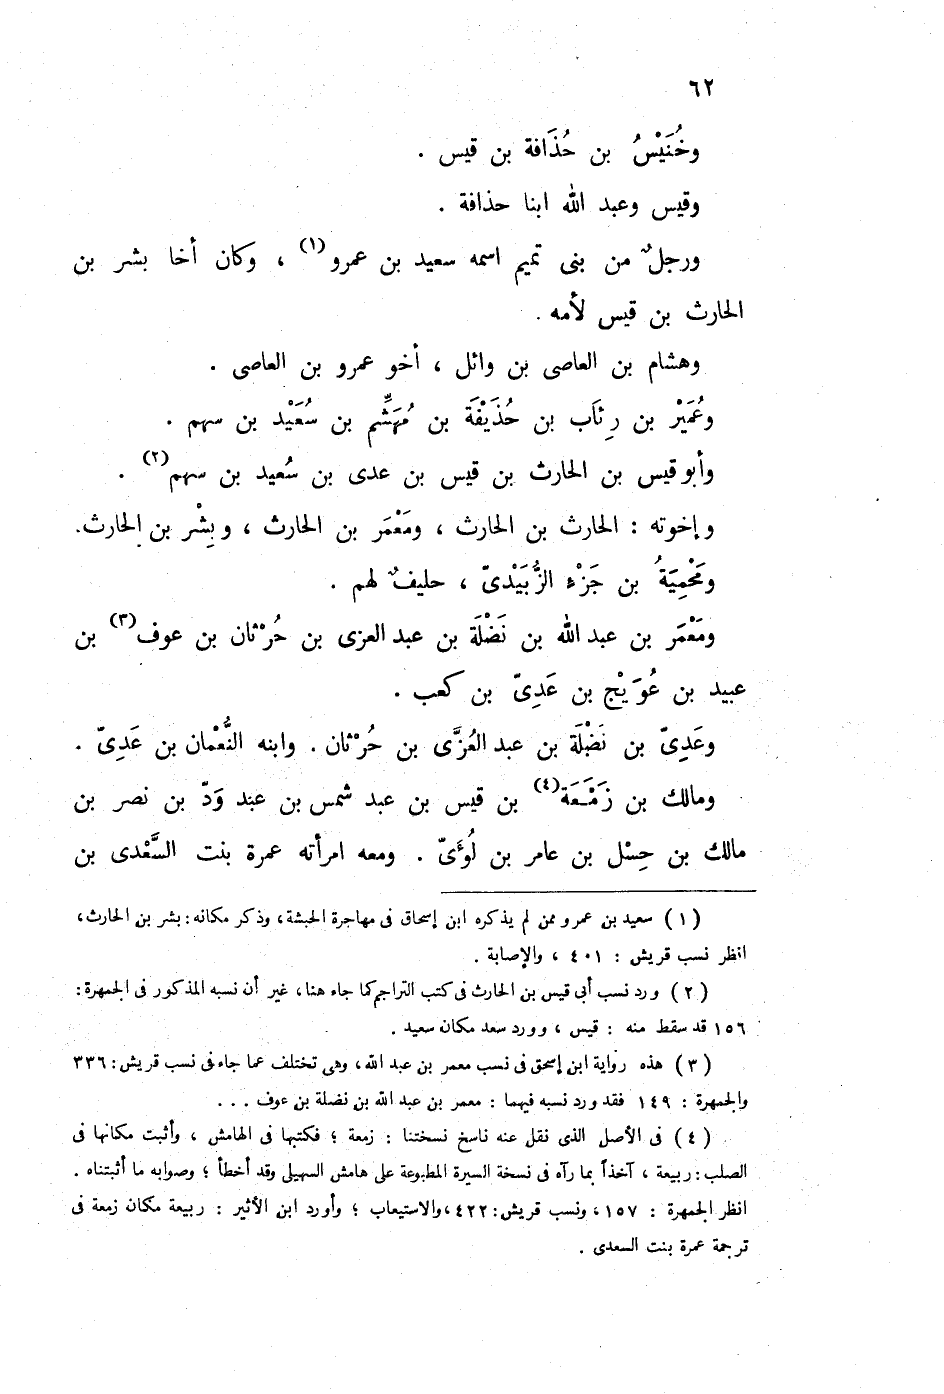 ٦٢
وخُنَيْسُ بن حُذَافة بن قيس .
وقيس وعبد الله ابنا حذافة .
ورجلٌ من بنى تميم اسمه سعيد بن عمرو(١) ، وكان أخا بشر بن
الحارث بن قيس لأمه .
وهشام بن العاصى بن وائل ، أخو عمرو بن العاصى .
وعُمَيْر بن رِئَاب بن حُذَيْفَة بن مُهَشِّم بن سُعَيْد بن سهم .
وأبو قيس بن الحارث بن قيس بن عدى بن سُعيد بن سهم(٢) .
وإخوته : الحارث بن الحارث ، ومَعْمَر بن الحارث ، وبِشْر بن الحارث.
ومَحْمِيَةُ بن جَزْء الزُّبَيْدىّ ، حليفٌ لهم .
ومَعْمَر بن عبد الله بن نَضْلَة بن عبد العزى بن حُرْثان بن عوف(٣) بن
عبيد بن عُوَيْج بن عَدِىّ بن كعب .
وعَدِىّ بن نَضْلَة بن عبد العُزَّى بن حُرْثان . وابنه النُّعْمان بن عَدِىّ .
ومالك بن زَمْعَة(٤) بن قيس بن عبد شمس بن عبد وَدّ بن نصر بن
مالك بن حِسْل بن عامر بن لُؤَىّ . ومعه امرأته عمرة بنت السَّعْدى بن
(١) سعيد بن عمرو ممن لم يذكره ابن إسحاق فى مهاجرة الحبشة، وذكر مكانه: بشر بن الحارث،
انظر نسب قريش : ٤٠١ ، والإصابة .
(٢) ورد نسب أبى قيس بن الحارث فى كتب التراجم كما جاء هنا، غير أن نسبه المذكور فى الجمهرة :
١٥٦ قد سقط منه : قيس ، وورد سعد مكان سعيد .
(٣) هذه رواية ابن إسحق فى نسب معمر بن عبد الله، وهى تختلف عما جاء فى نسب قريش: ٣٣٦
والجمهرة : ١٤٩ فقد ورد نسبه فيهما : معمر بن عبد الله بن نضلة بن عوف . . .
(٤) فى الأصل الذى نقل عنه ناسخ نسختنا : زمعة ؛ فكتبها فى الهامش ، وأثبت مكانها فى
الصلب: ربيعة ، آخذاً بما رآه فى نسخة السيرة المطبوعة على هامش السهيلى وقد أخطأ ؛ وصوابه ما أثبتناه .
انظر الجمهرة : ١٥٧، ونسب قريش: ٤٢٢،والاستيعاب ؛ وأورد ابن الأثير : ربيعة مكان زمعة فى
ترجمة عمرة بنت السعدى .